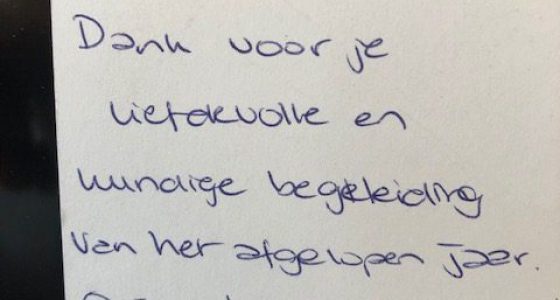 Dank voor je
liefdevolle en
kundige begeleiding
van het afgelopen jaar.